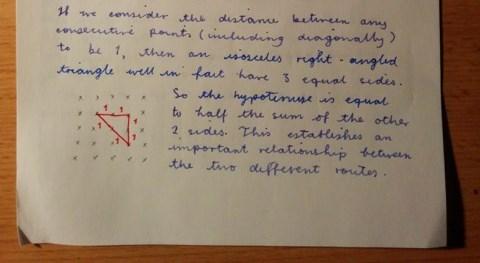 If we consider the distance between any
consecutive points (including diagonally)
to be 1, then an isosceles right-angled
triangle will in fact have 3 equal sides.
So the hypotenuse is equal
to half the sum of the other
2 sides. This establishes an
important relationship between
the two different routes.
1 1
1 1
1 1